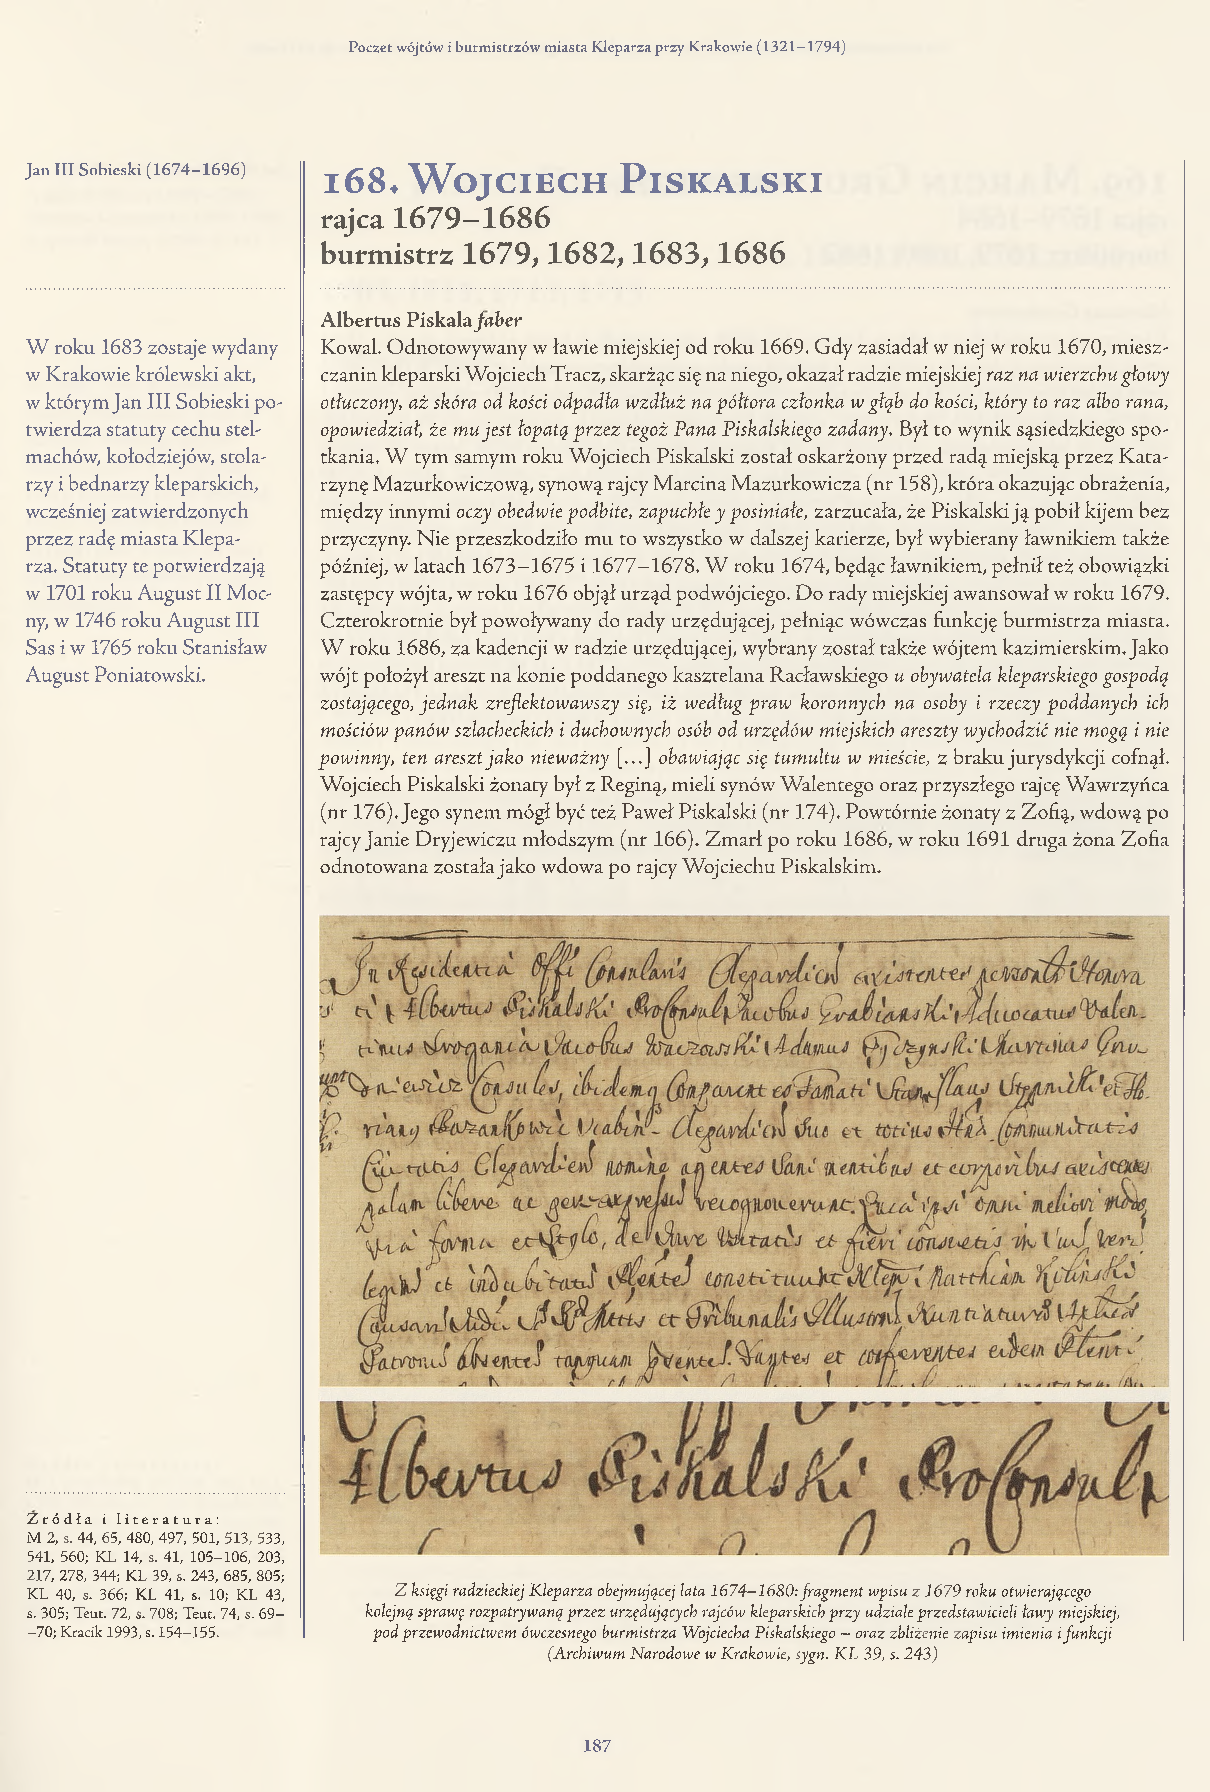 Poczet wójtów i burmistrzów miasta Kleparza przy Krakowie (1321–1794)
Jan III Sobieski (1674–1696)
W roku 1683 zostaje wydany
w Krakowie królewski akt,
w którym Jan III Sobieski po-
twierdza statuty cechu stel-
machów, kołodziejów, stola-
rzy i bednarzy kleparskich,
wcześniej zatwierdzonych
przez radę miasta Klepa-
rza. Statuty te potwierdzają
w 1701 roku August II Moc-
ny, w 1746 roku August III
Sas i w 1765 roku Stanisław
August Poniatowski.
Źródła i literatura:
M 2, s. 44, 65, 480, 497, 501, 513, 533,
541, 560; KL 14, s. 41, 105–106, 203,
217, 278, 344; KL 39, s. 243, 685, 805;
KL 40, s. 366; KL 41, s. 10; KL 43,
s. 305; Teut. 72, s. 708; Teut. 74, s. 69–
–70; Kracik 1993, s. 154–155.
168. Wojciech Piskalski
rajca 1679–1686
burmistrz 1679, 1682, 1683, 1686
Albertus Piskala faber
Kowal. Odnotowywany w ławie miejskiej od roku 1669. Gdy zasiadał w niej w roku 1670, miesz-
czanin kleparski Wojciech Tracz, skarżąc się na niego, okazał radzie miejskiej raz na wierzchu głowy
otłuczony, aż skóra od kości odpadła wzdłuż na półtora członka w głąb do kości, który to raz albo rana,
opowiedział, że mu jest łopatą przez tegoż Pana Piskalskiego zadany. Był to wynik sąsiedzkiego spo-
tkania. W tym samym roku Wojciech Piskalski został oskarżony przed radą miejską przez Kata-
rzynę Mazurkowiczową, synową rajcy Marcina Mazurkowicza (nr 158), która okazując obrażenia,
między innymi oczy obedwie podbite, zapuchłe y posiniałe, zarzucała, że Piskalski ją pobił kijem bez
przyczyny. Nie przeszkodziło mu to wszystko w dalszej karierze, był wybierany ławnikiem także
później, w latach 1673–1675 i 1677–1678. W roku 1674, będąc ławnikiem, pełnił też obowiązki
zastępcy wójta, w roku 1676 objął urząd podwójciego. Do rady miejskiej awansował w roku 1679.
Czterokrotnie był powoływany do rady urzędującej, pełniąc wówczas funkcję burmistrza miasta.
W roku 1686, za kadencji w radzie urzędującej, wybrany został także wójtem kazimierskim. Jako
wójt położył areszt na konie poddanego kasztelana Racławskiego u obywatela kleparskiego gospodą
zostającego, jednak zreflektowawszy się, iż według praw koronnych na osoby i rzeczy poddanych ich
mościów panów szlacheckich i duchownych osób od urzędów miejskich areszty wychodzić nie mogą i nie
powinny, ten areszt jako nieważny [...] obawiając się tumultu w mieście, z braku jurysdykcji cofnął.
Wojciech Piskalski żonaty był z Reginą, mieli synów Walentego oraz przyszłego rajcę Wawrzyńca
(nr 176). Jego synem mógł być też Paweł Piskalski (nr 174). Powtórnie żonaty z Zofią, wdową po
rajcy Janie Dryjewiczu młodszym (nr 166). Zmarł po roku 1686, w roku 1691 druga żona Zofia
odnotowana została jako wdowa po rajcy Wojciechu Piskalskim.
In Residentia Offi Consularis
Albertus Piskalski ProConsul Jacobus Grabianski Advocatus Valen-
Jacobus Adamus Martinus
Consules, ibidemq
et totius Communitatis
nomine agentes Sani mentibus et corporibus
palam libere ac recognoverunt. omni meliori modo
via forma et Stylo, de Jure et fieri
et constituunt Matthiam
et Tribunalis
tanquam et conferentes eidem
Albertus Piskalski ProConsul
Z księgi radzieckiej Kleparza obejmującej lata 1674–1680: fragment wpisu z 1679 roku otwierającego
kolejną sprawę rozpatrywaną przez urzędujących rajców kleparskich przy udziale przedstawicieli ławy miejskiej,
pod przewodnictwem ówczesnego burmistrza Wojciecha Piskalskiego – oraz zbliżenie zapisu imienia i funkcji
(Archiwum Narodowe w Krakowie, sygn. KL 39, s. 243)
187